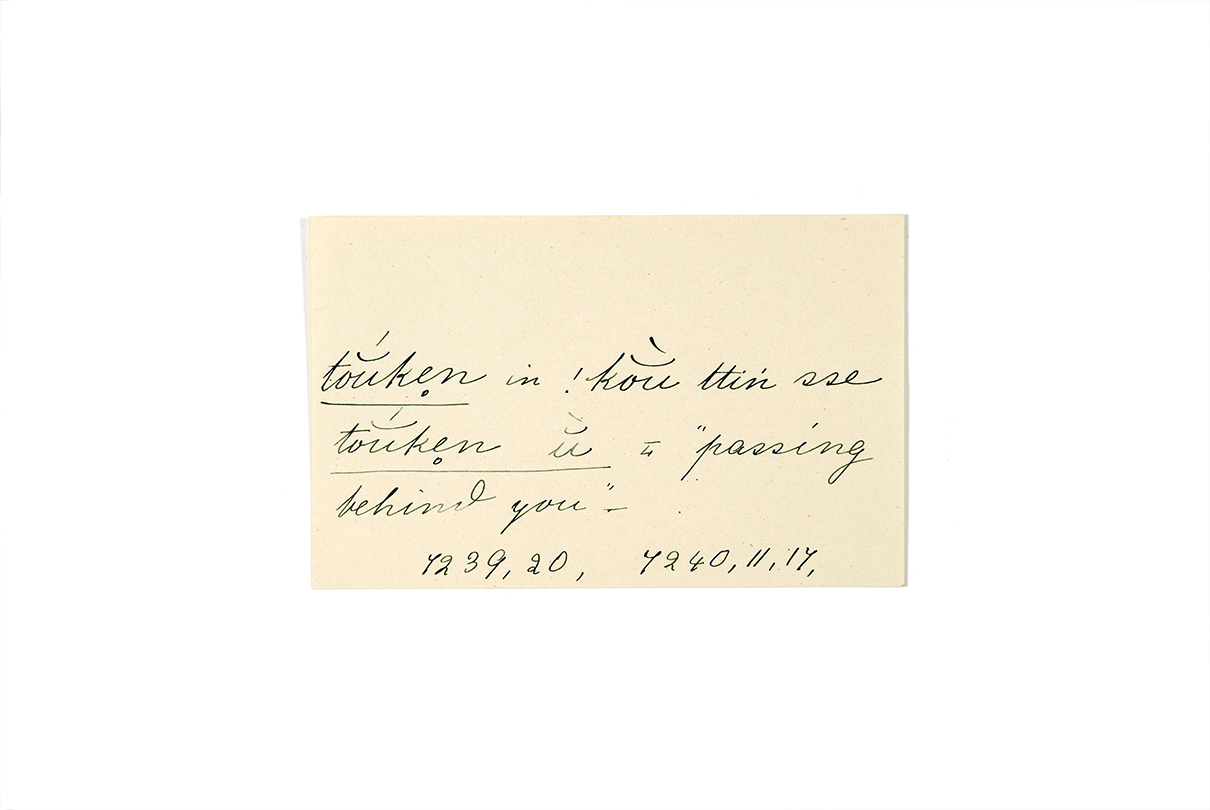 tŏ́uken̥ in !kŏ̀u ttiń sse
tŏ́uken̥ ŭ̀ = "passing
behind you"—
7239, 20, 7240, 11, 17,